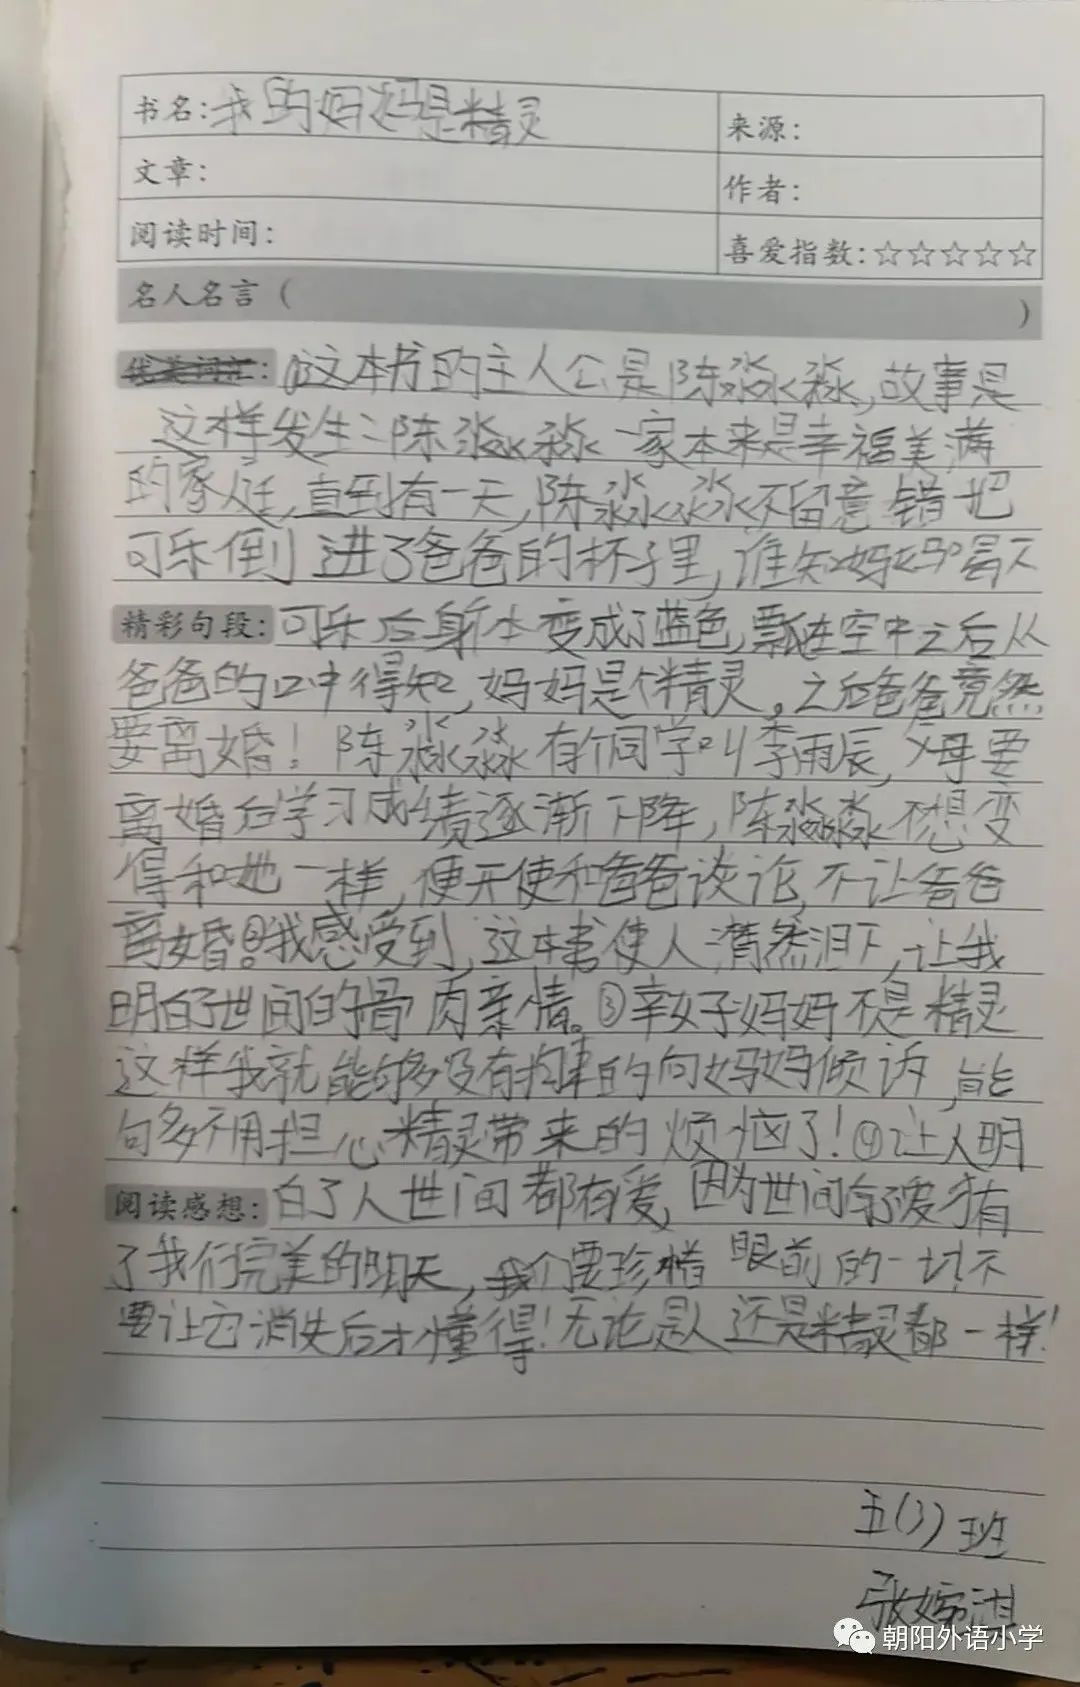 书名:我的妈妈是精灵
来源:
文章:
作者:
阅读时间:
喜爱指数:☆☆☆☆☆
名人名言（ ）
①这本书的主人公是陈淼淼,故事是
这样发生:陈淼淼一家本来是幸福美满
的家庭,直到有一天,陈淼淼不留意错把
可乐倒进了爸爸的杯子里,谁知妈妈喝下
精彩句段:可乐后身体变成了蓝色,飘在空中之后从
爸爸的口中得知,妈妈是个精灵。之后爸爸竟然
要离婚!陈淼淼有个同学叫李雨辰,父母要
离婚后学习成绩逐渐下降,陈淼淼不想变
得和她一样,便天使和爸爸谈论,不让爸爸
离婚。②我感受到,这本书使人潸然泪下,让我
明白了世间的骨肉亲情。③幸好妈妈不是精灵
这样我就能够没有拘束的向妈妈倾诉,能
够不用担心精灵带来的烦恼了!④让人明
阅读感想:白了人世间都有爱,因为世间有了爱才有
了我们完美的明天,我们要珍惜眼前的一切不
要让它消失后才懂得!无论是人还是精灵都一样!
五(3)班
张婼淇
朝阳外语小学